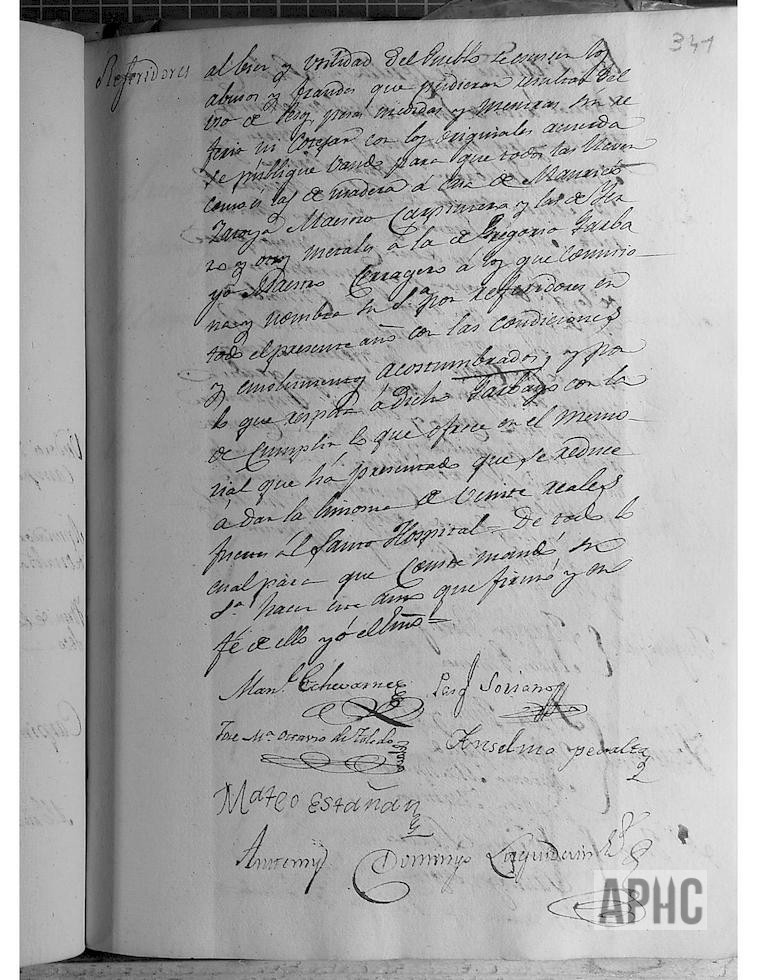 341
Referidores
al bien y utilidad del Pueblo se eviten los
abusos y fraudes que pudieran resultar del
uso de pesos, pesas medidas y mensuras sin re
ferir ni cotejar con los originales acuerda
se publique vando para que todos las lleven
como es las de madera á casa de
Maestro Carpintero y las de Yer
ro y otros metales á la de Gregorio Garba
yo Maestro Cerragero á los que comisio
na y nombra su Sª por referidores en
todo el presente año con las condiciones
y emolumentos acostumbrados, y por
lo que respeta á dicho Garbayo con la
de cumplir lo que ofrece en el memo
rial que há presentado que se reduce
á dar la limosna de veinte reales
fuertes al Santo Hospital = De todo lo
cual para que conste mandó su
Sª hacer este Auto que firmó y en
fé de ello yó el Essno =
Manl Echevarria
Pasql Soriano
Jose Mª Octavio de Toledo
Anselmo peralta
Mateo EStañan
Antemi
Domingo
APHC